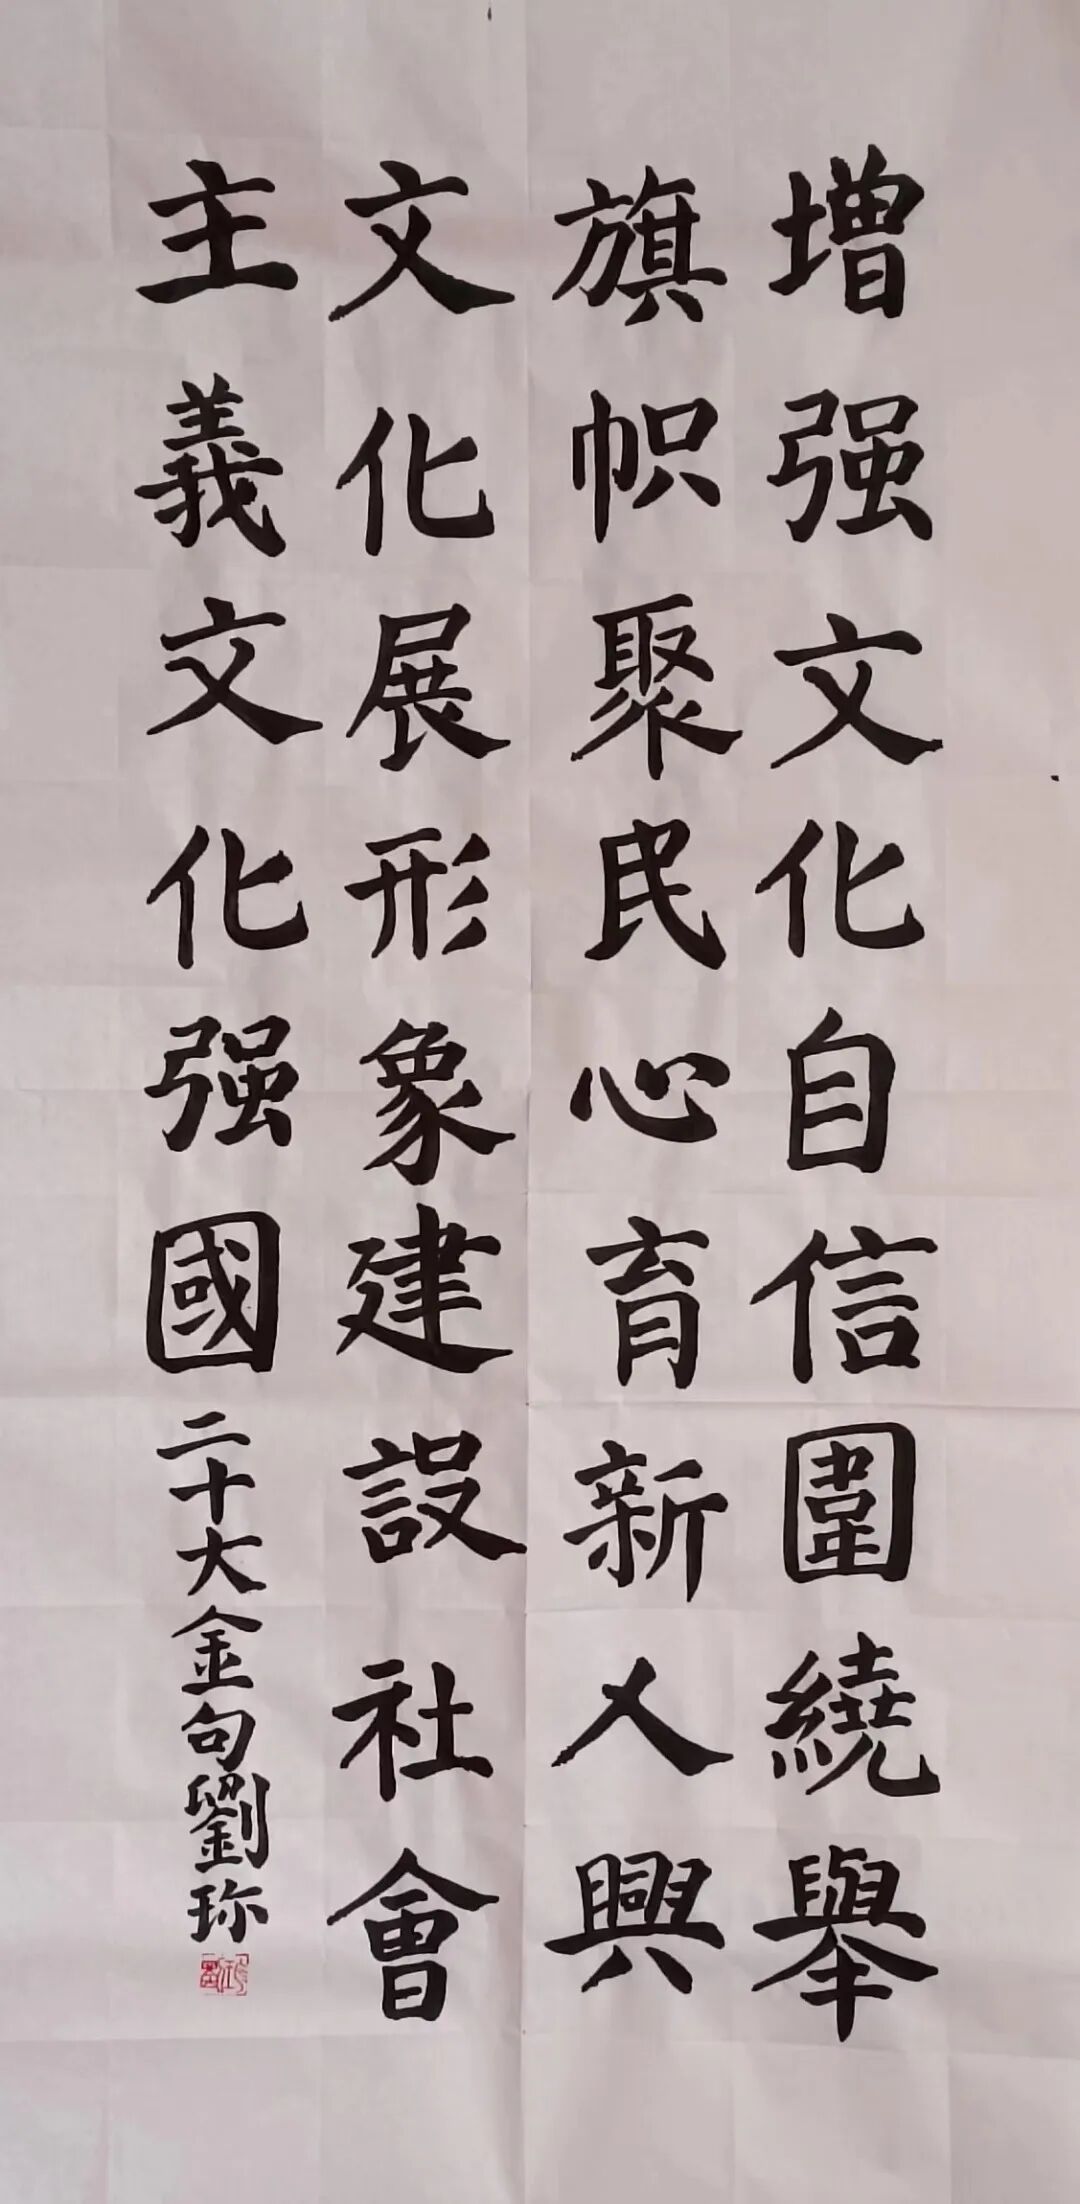 增强文化自信圍繞舉
旗帜聚民心育新人興
文化展形象建設社會
主義文化强國
二十大金句劉珎